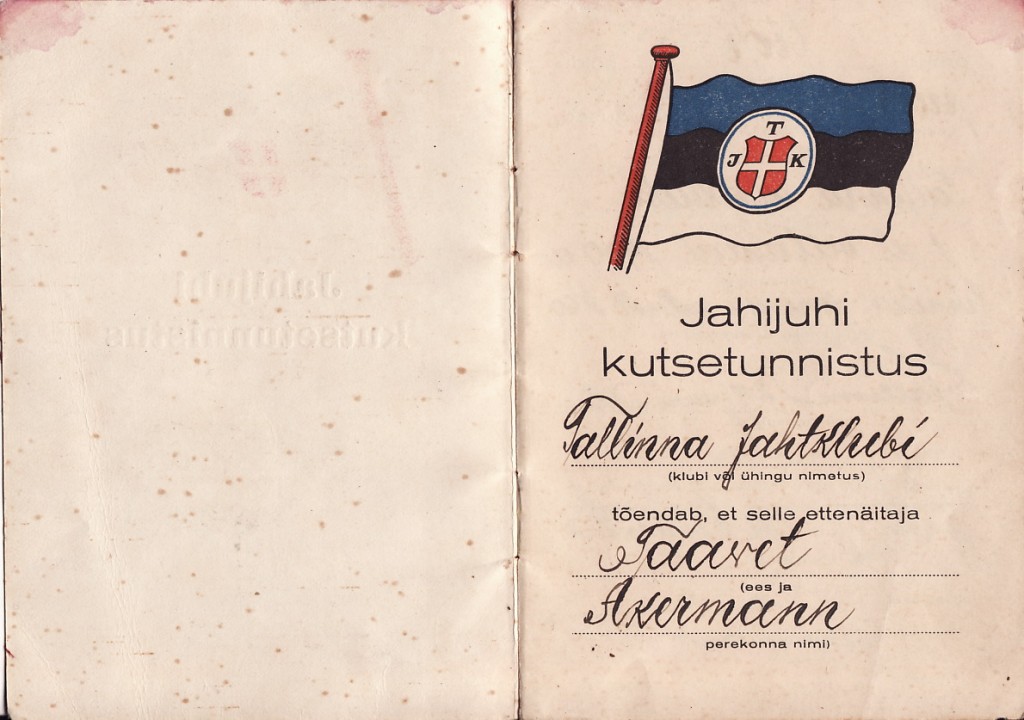 T
J K
Jahijuhi
kutsetunnistus
Tallinna Jahtklubi
(klubi või ühingu nimetus)
tõendab, et selle ettenäitaja
Taavet
(ees ja
Akermann
perekonna nimi)